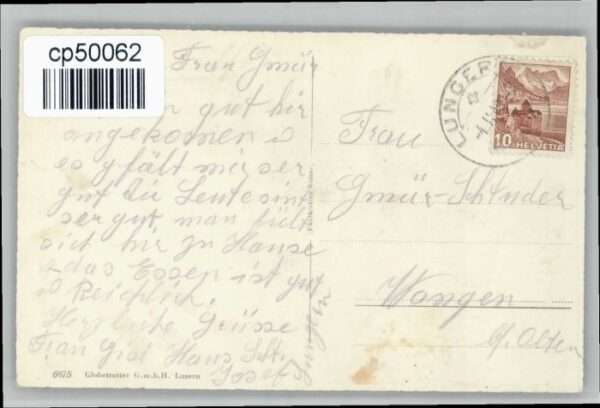 cp50062
Frau Gmür
gut hir
angekomen u
es gfält mir ser
gut die Leute sint
ser gut man fült
sich hir zu Hause
das Essen ist gut
u Reichlich.
Herzliche Grüsse
Frau Hans
Josef
Lungern
6675 Globetrotter G.m.b.H. Luzern
LUNGER
10 HELVETIA
Frau
Gmür-Schtuder
Wangen
b/ Olten